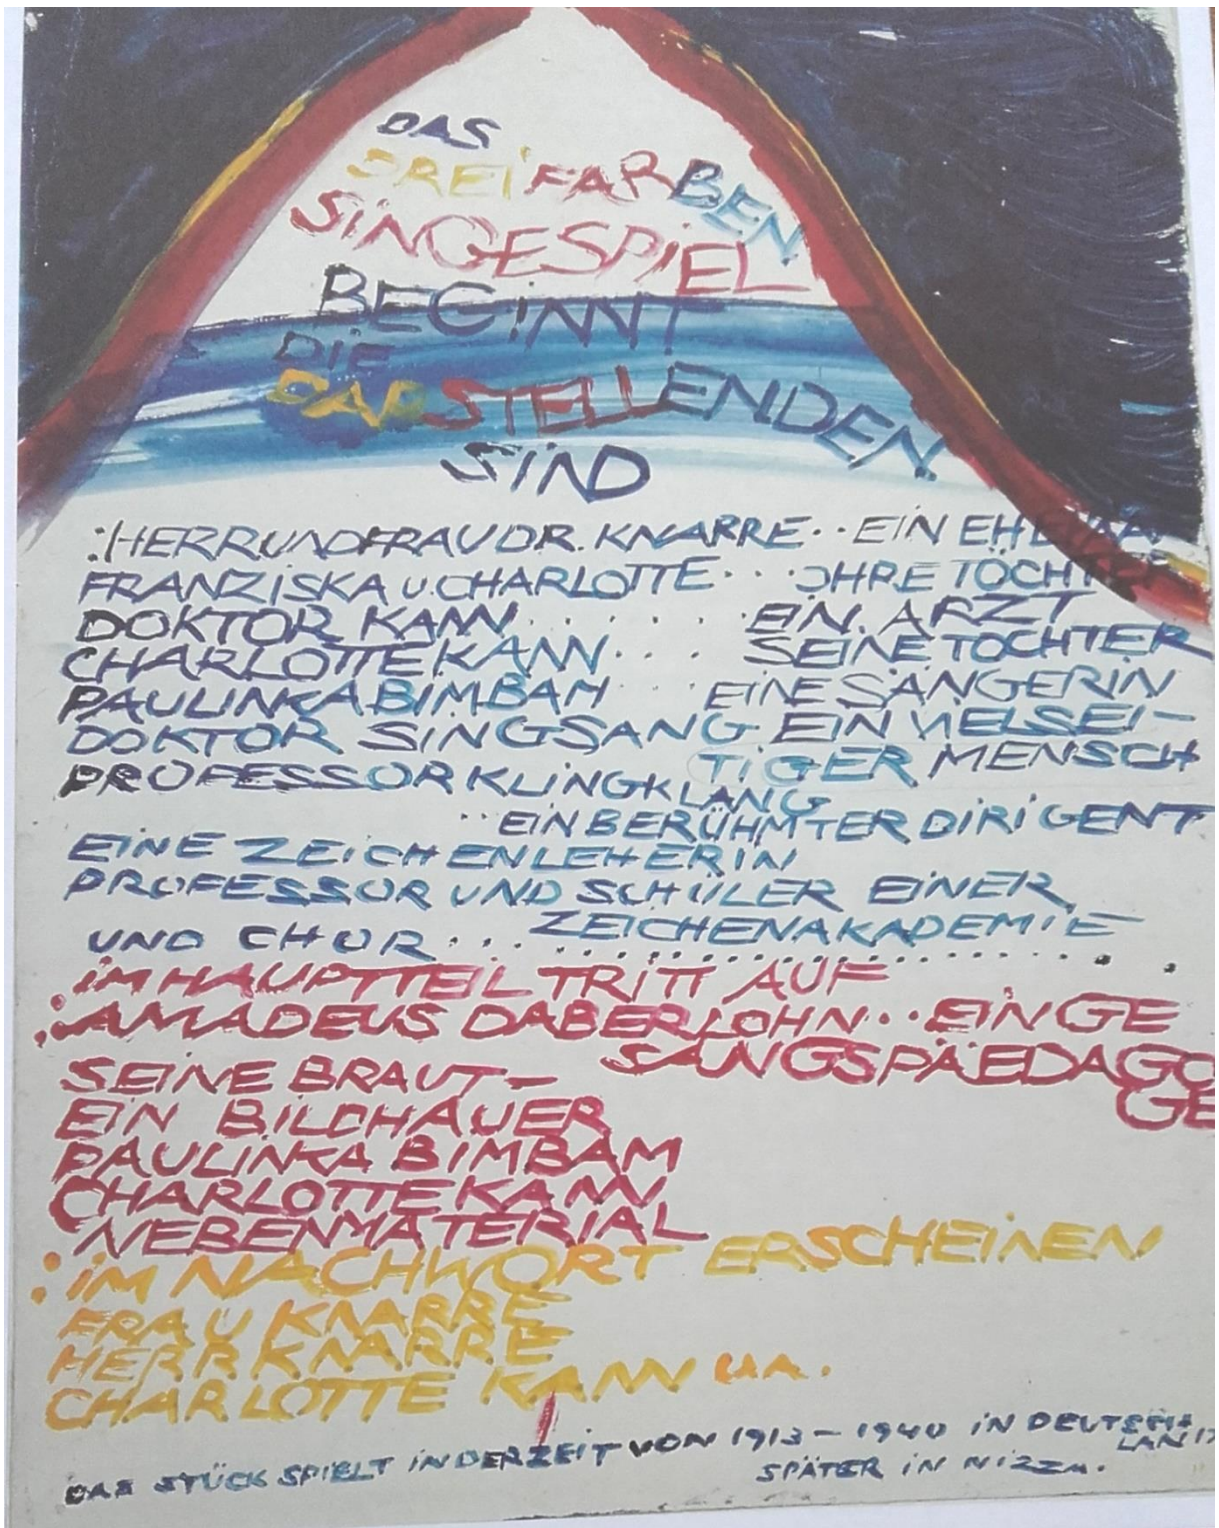 DAS
DREIFARBEN
SINGESPIEL
BEGINNT
DIE
DARSTELLENDEN
SIND
:HERR UND FRAU DR. KNARRE.. EIN
FRANZISKA U. CHARLOTTE... IHRE
DOKTOR KANN....... EIN ARZT
CHARLOTTE KANN.... SEINE TOCHTER
PAULINKA BIMBAM... EINE SÄNGERIN
DOKTOR SINGSANG EIN VIELSEI-
TIGER MENSCH
PROFESSOR KLINGKLANG
..EIN BERÜHMTER DIRIGENT
EINE ZEICHENLEHERIN
PROFESSOR UND SCHÜLER EINER
ZEICHENAKADEMIE
UND CHOR................
:IM HAUPTTEIL TRITT AUF
:AMADEUS DABERLOHN.. EIN GE
SANGSPÄEDAGO
GE
SEINE BRAUT-
EIN BILDHAUER
PAULINKA BIMBAM
CHARLOTTE KANN
NEBENMATERIAL
:IM NACHWORT ERSCHEINEN
FRAU KNARRE
HERR KNARRE
CHARLOTTE KANN U.A.
DAS STÜCK SPIELT IN DER ZEIT VON 1913-1940 IN DEUTSCH
LAND
SPÄTER IN NIZZA.